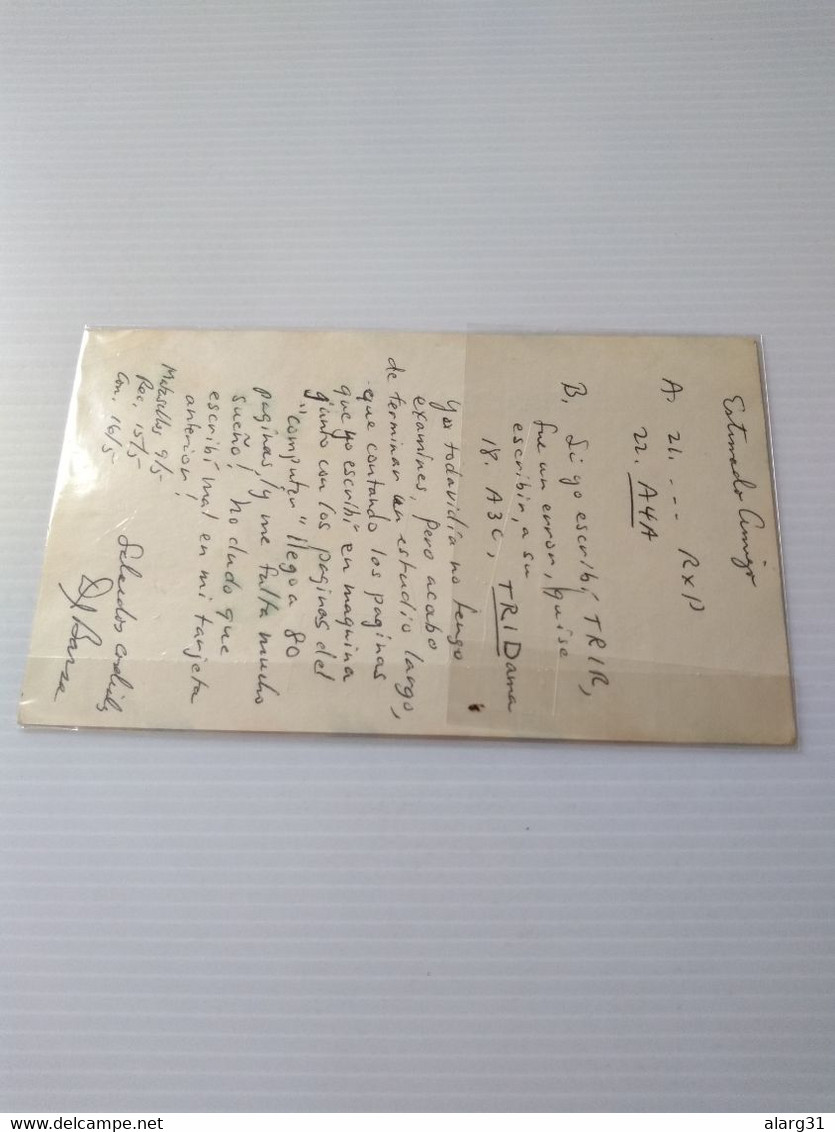 Estimado Amigo
A. 21. --- RxP
22. A4A
B. Si yo escribí, TR1R,
fue un error, quise
escribir, a su
18. A3C, TR1Dama
Yo todavidía no tengo
examines, pero acabo
de terminar un estudio largo,
que contando los paginas
que yo escribí en maquina
junto con los paginas del
"computer" llego a 80
paginas, ¡y me falta mucho
sueño! No dudo que
escribí mal en mi tarjeta
anterior!
Matasellos 9/5
Rec. 15/5
Con. 16/5
Saludos cordiales
delcampe.net
alarg31